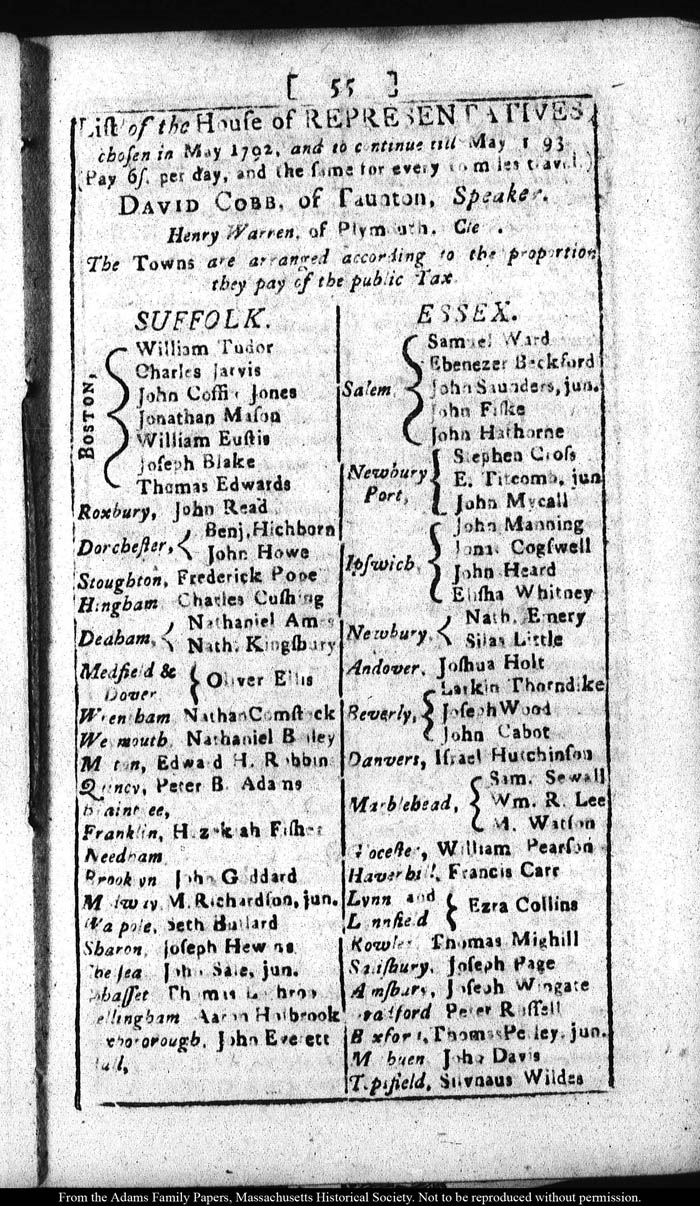 [ 55 ]
List of the House of REPRESENTATIVES,
chosen in May 1792, and to continue till May 93
(Pay 6ſ. per day, and the ſame for every 10 miles travel.)
DAVID COBB, of Taunton, Speaker.
Henry Warren, of Plymouth. Cle .
The Towns are arranged according to the proportion
they pay of the public Tax.
SUFFOLK.
BOSTON,
William Tudor
Charles Jarvis
John Coffin Jones
Jonathan Maſon
William Euſtis
Joſeph Blake
Thomas Edwards
Roxbury, John Read
Dorcheſter,
Benj. Hichborn
John Howe
Stoughton, Frederick Pope
Hingham Charles Cuſhing
Dedham,
Nathaniel Ames
Nath. Kingſbury
Medfield &
Dover
Oliver Ellis
Wrentham Nathan Comſtock
Weymouth, Nathaniel Bailey
Milton, Edward H. Robbins
Quincy, Peter B. Adams
Braintree,
Franklin, Hezekiah Fiſher
Needham
Brooklyn John Goddard
Medway, M. Richardſon, jun.
Walpole, Seth Bullard
Sharon, Joſeph Hewins
Chelſea John Sale, jun.
Cohaſſet Thomas Lothrop
Bellingham Aaron Holbrook
Foxborough, John Everett
Hull,
ESSEX.
Salem,
Samuel Ward
Ebenezer Beckford
John Saunders, jun.
John Fiſke
John Hathorne
Newbury
Port,
Stephen Croſs
E. Titcomb, jun
John Mycall
Ipſwich,
John Manning
Jona. Cogſwell
John Heard
Eliſha Whitney
Newbury,
Nath. Emery
Silas Little
Andover, Joſhua Holt
Beverly,
Larkin Thorndike
Joſeph Wood
John Cabot
Danvers, Iſrael Hutchinſon
Marblehead,
Sam. Sewall
Wm. R. Lee
M. Watſon
Gloceſter, William Pearſon
Haverhill, Francis Carr
Lynn and
Lynnfield
Ezra Collins
Rowley Thomas Mighill
Saliſbury, Joſeph Page
Amſbury, Joſeph Wingate
Bradford Peter Ruſſell
Boxford, Thomas Perley, jun.
Methuen John Davis
Topsfield, Silvnaus Wildes
From the Adams Family Papers, Massachusetts Historical Society. Not to be reproduced without permission.